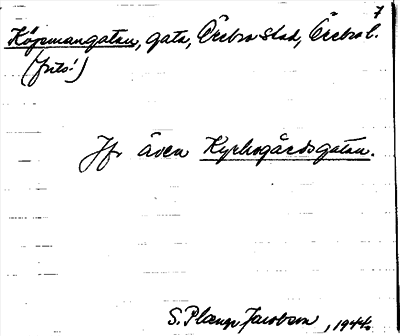 7
Köpmangatan, gata, Örebro stad, Örebro l.
Jfr även Kyrkogårdsgatan.
S. Plange Jacobson, 1944.